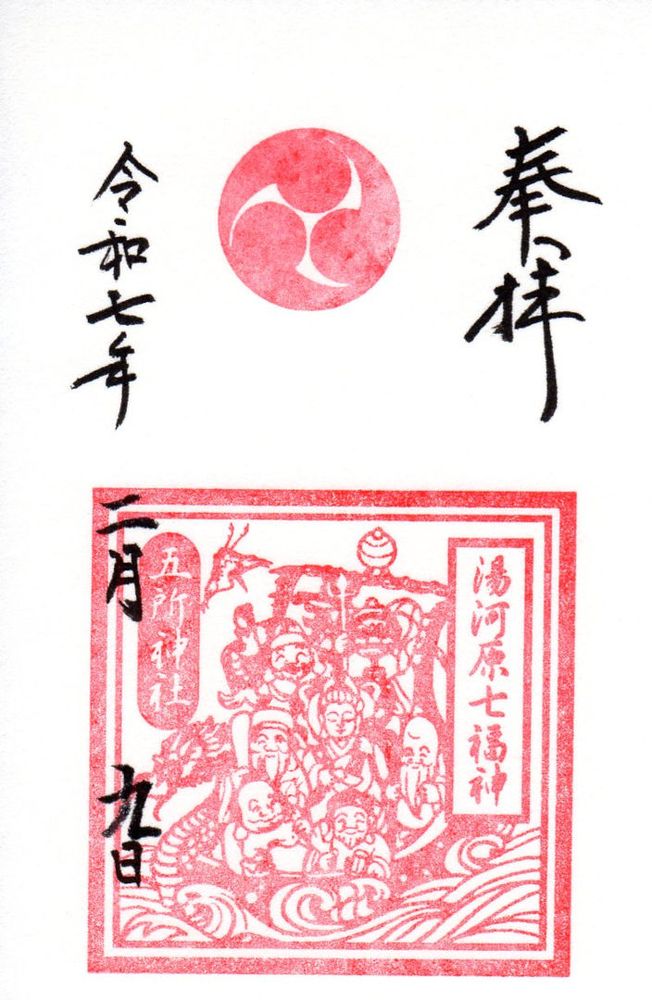 奉拝
湯河原七福神
五所神社
令和七年
二月
九日